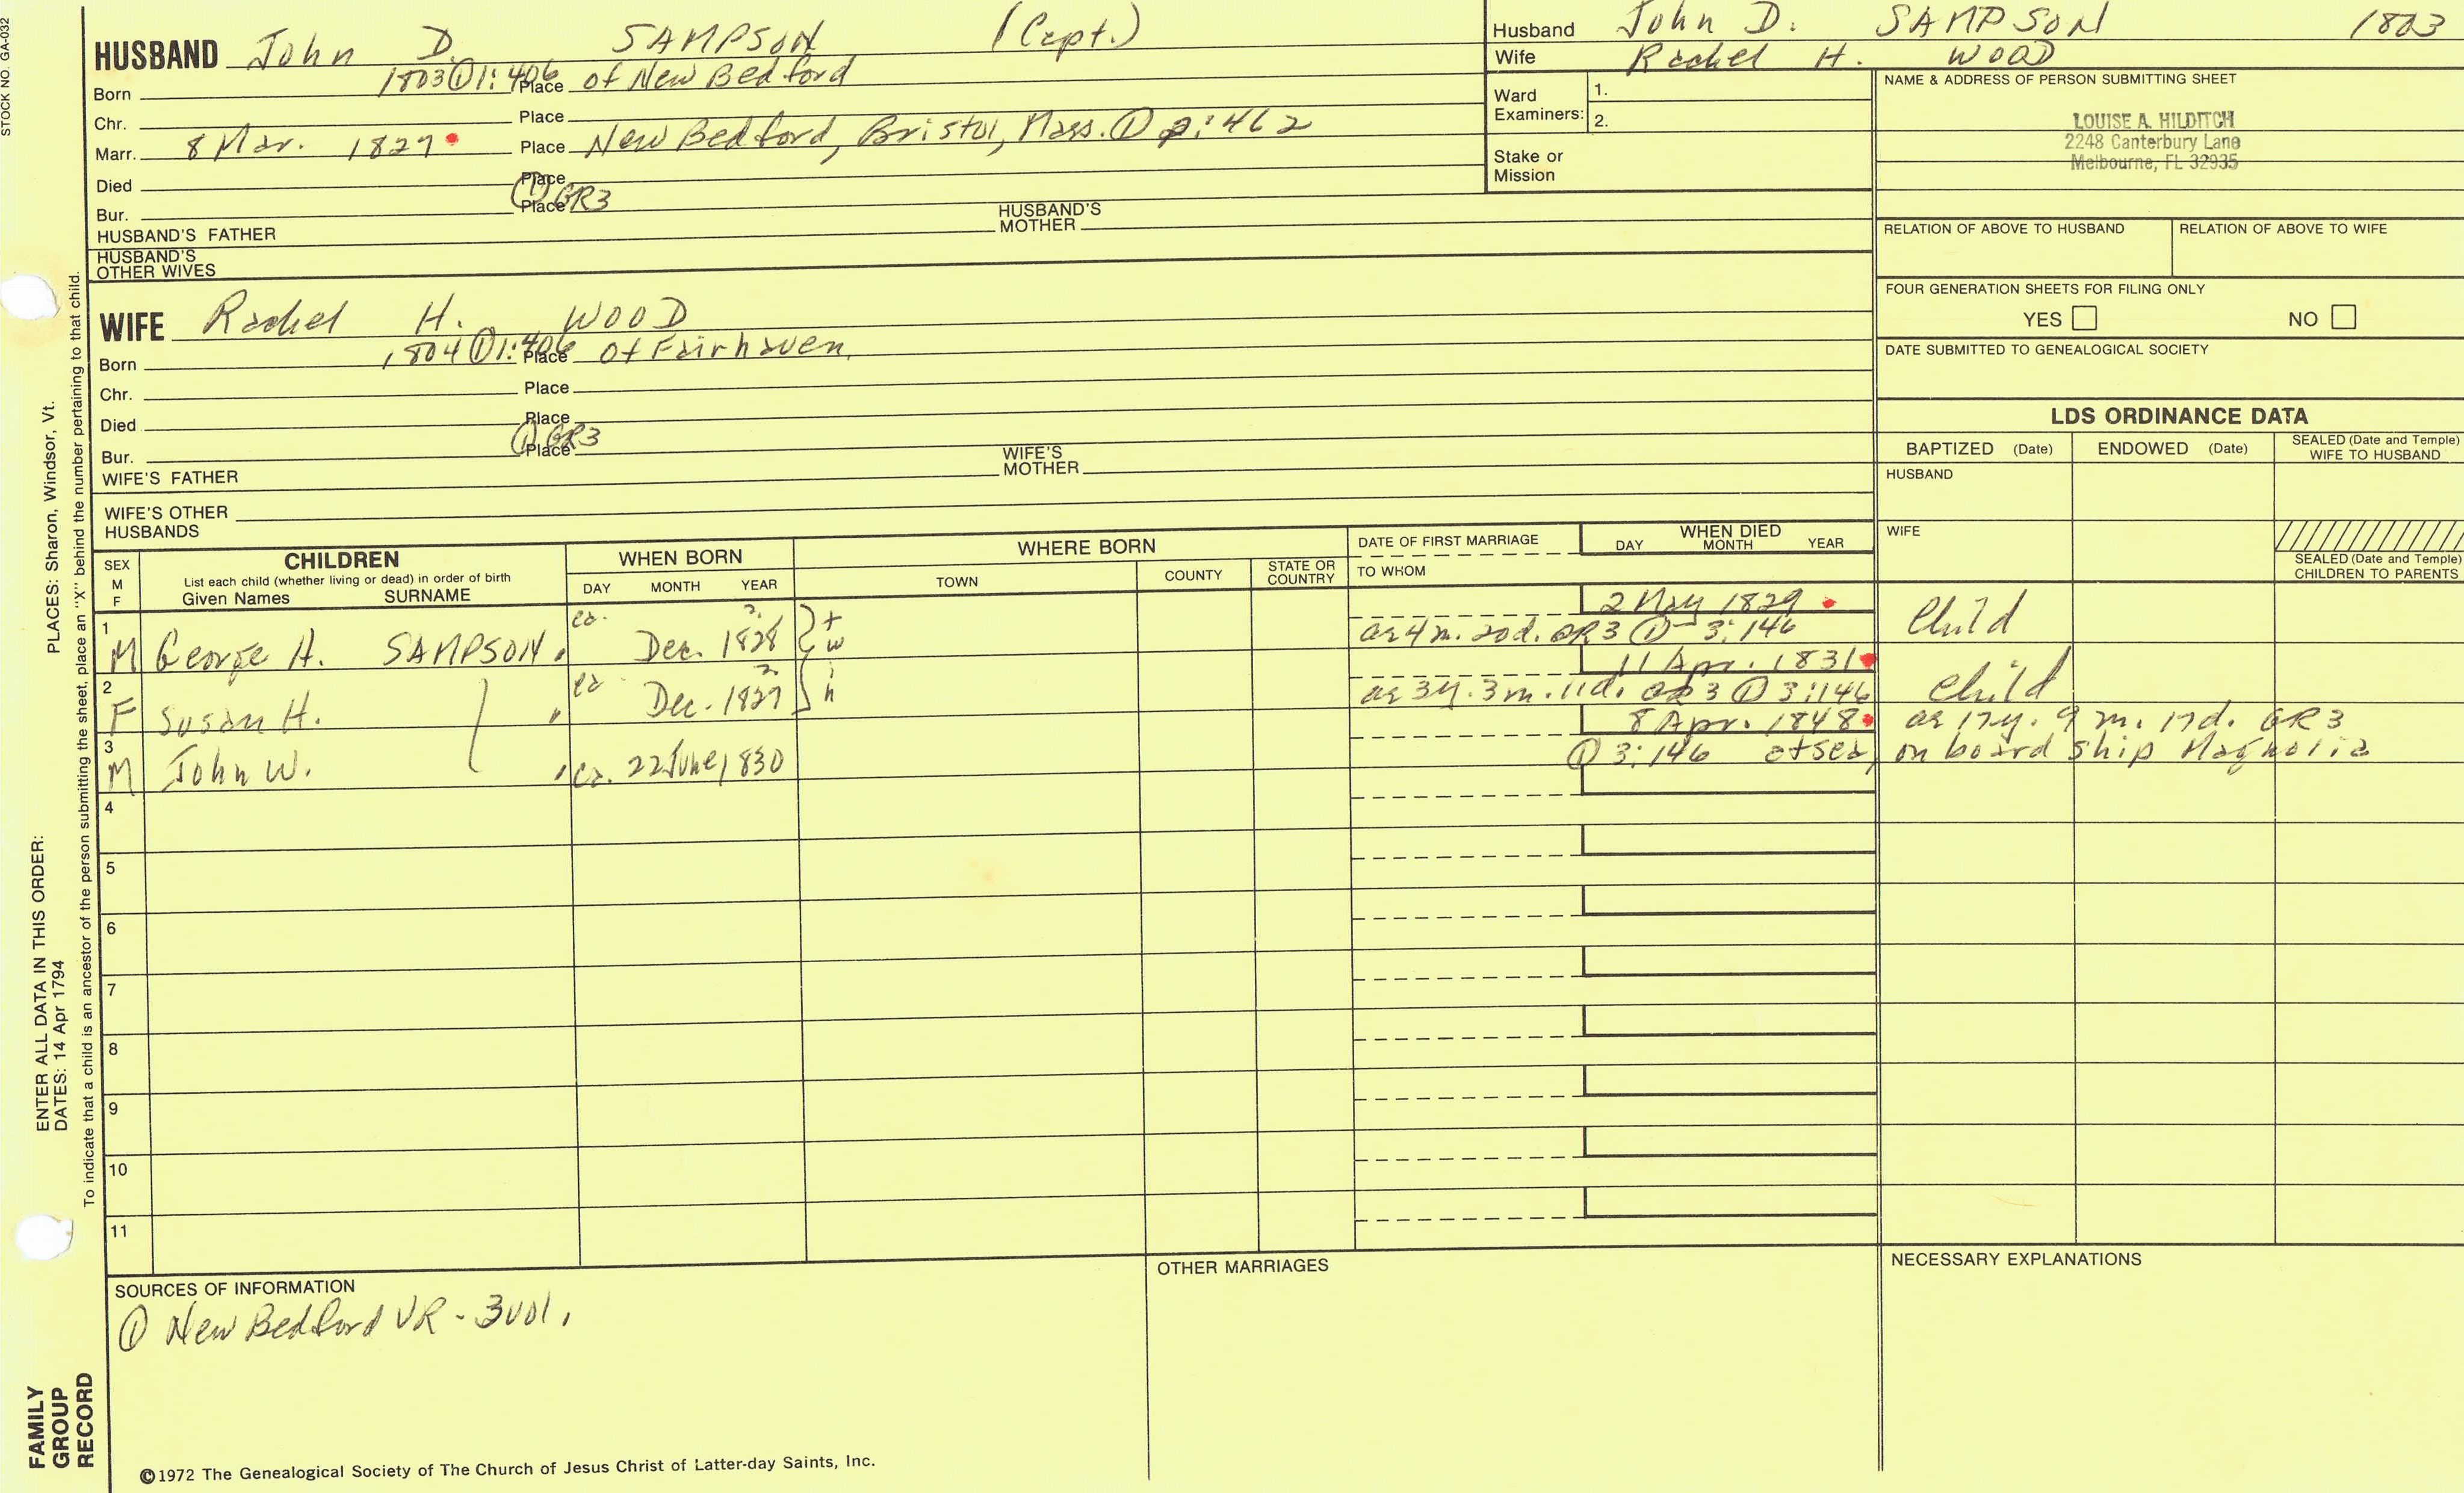 STOCK NO. GA-032
HUSBAND John D. SAMPSON (Capt.)
Born 1803 ① 1:406 Place of New Bedford
Chr. Place
Marr. 8 Mar. 1827 Place New Bedford, Bristol, Mass. ① 2:462
Died Place
Bur. Place ① GR3
HUSBAND'S FATHER HUSBAND'S MOTHER
HUSBAND'S OTHER WIVES
WIFE Rachel H. WOOD
Born 1804 ① 1:406 Place of Fairhaven
Chr. Place
Died Place
Bur. Place ① GR3
WIFE'S FATHER WIFE'S MOTHER
WIFE'S OTHER HUSBANDS
Husband John D. SAMPSON 1803
Wife Rachel H. WOOD
Ward Examiners: 1.
2.
Stake or Mission
NAME & ADDRESS OF PERSON SUBMITTING SHEET
LOUISE A. HILDITCH
2248 Canterbury Lane
Melbourne, FL 32935
RELATION OF ABOVE TO HUSBAND RELATION OF ABOVE TO WIFE
FOUR GENERATION SHEETS FOR FILING ONLY
YES NO
DATE SUBMITTED TO GENEALOGICAL SOCIETY
LDS ORDINANCE DATA
BAPTIZED (Date) ENDOWED (Date) SEALED (Date and Temple) WIFE TO HUSBAND
HUSBAND
WIFE
SEALED (Date and Temple) CHILDREN TO PARENTS
SEX M F
CHILDREN
List each child (whether living or dead) in order of birth
Given Names SURNAME
WHEN BORN
DAY MONTH YEAR
WHERE BORN
TOWN COUNTY STATE OR COUNTRY
DATE OF FIRST MARRIAGE
TO WHOM
WHEN DIED
DAY MONTH YEAR
2 May 1829
1 M George H. SAMPSON ca. Dec. 1828 ? } t w ae 4 m. 20d. GR3 ① 3:146 Child
11 Apr. 1831
2 F Susan H. " ca Dec. 1827 ? } i n ae 3y. 3m. 11d. GR3 ① 3:146 Child
8 Apr. 1848 ae 17y. 9 m. 17d. GR3
3 M John W. " ca. 22 June 1830 ① 3:146 at sea, on board ship Magnolia
4
5
6
7
8
9
10
11
SOURCES OF INFORMATION
① New Bedford VR - 3 vol.
OTHER MARRIAGES
NECESSARY EXPLANATIONS
©1972 The Genealogical Society of The Church of Jesus Christ of Latter-day Saints, Inc.
FAMILY GROUP RECORD
ENTER ALL DATA IN THIS ORDER:
DATES: 14 Apr 1794
PLACES: Sharon, Windsor, Vt.
To indicate that a child is an ancestor of the person submitting the sheet, place an "X" behind the number pertaining to that child.